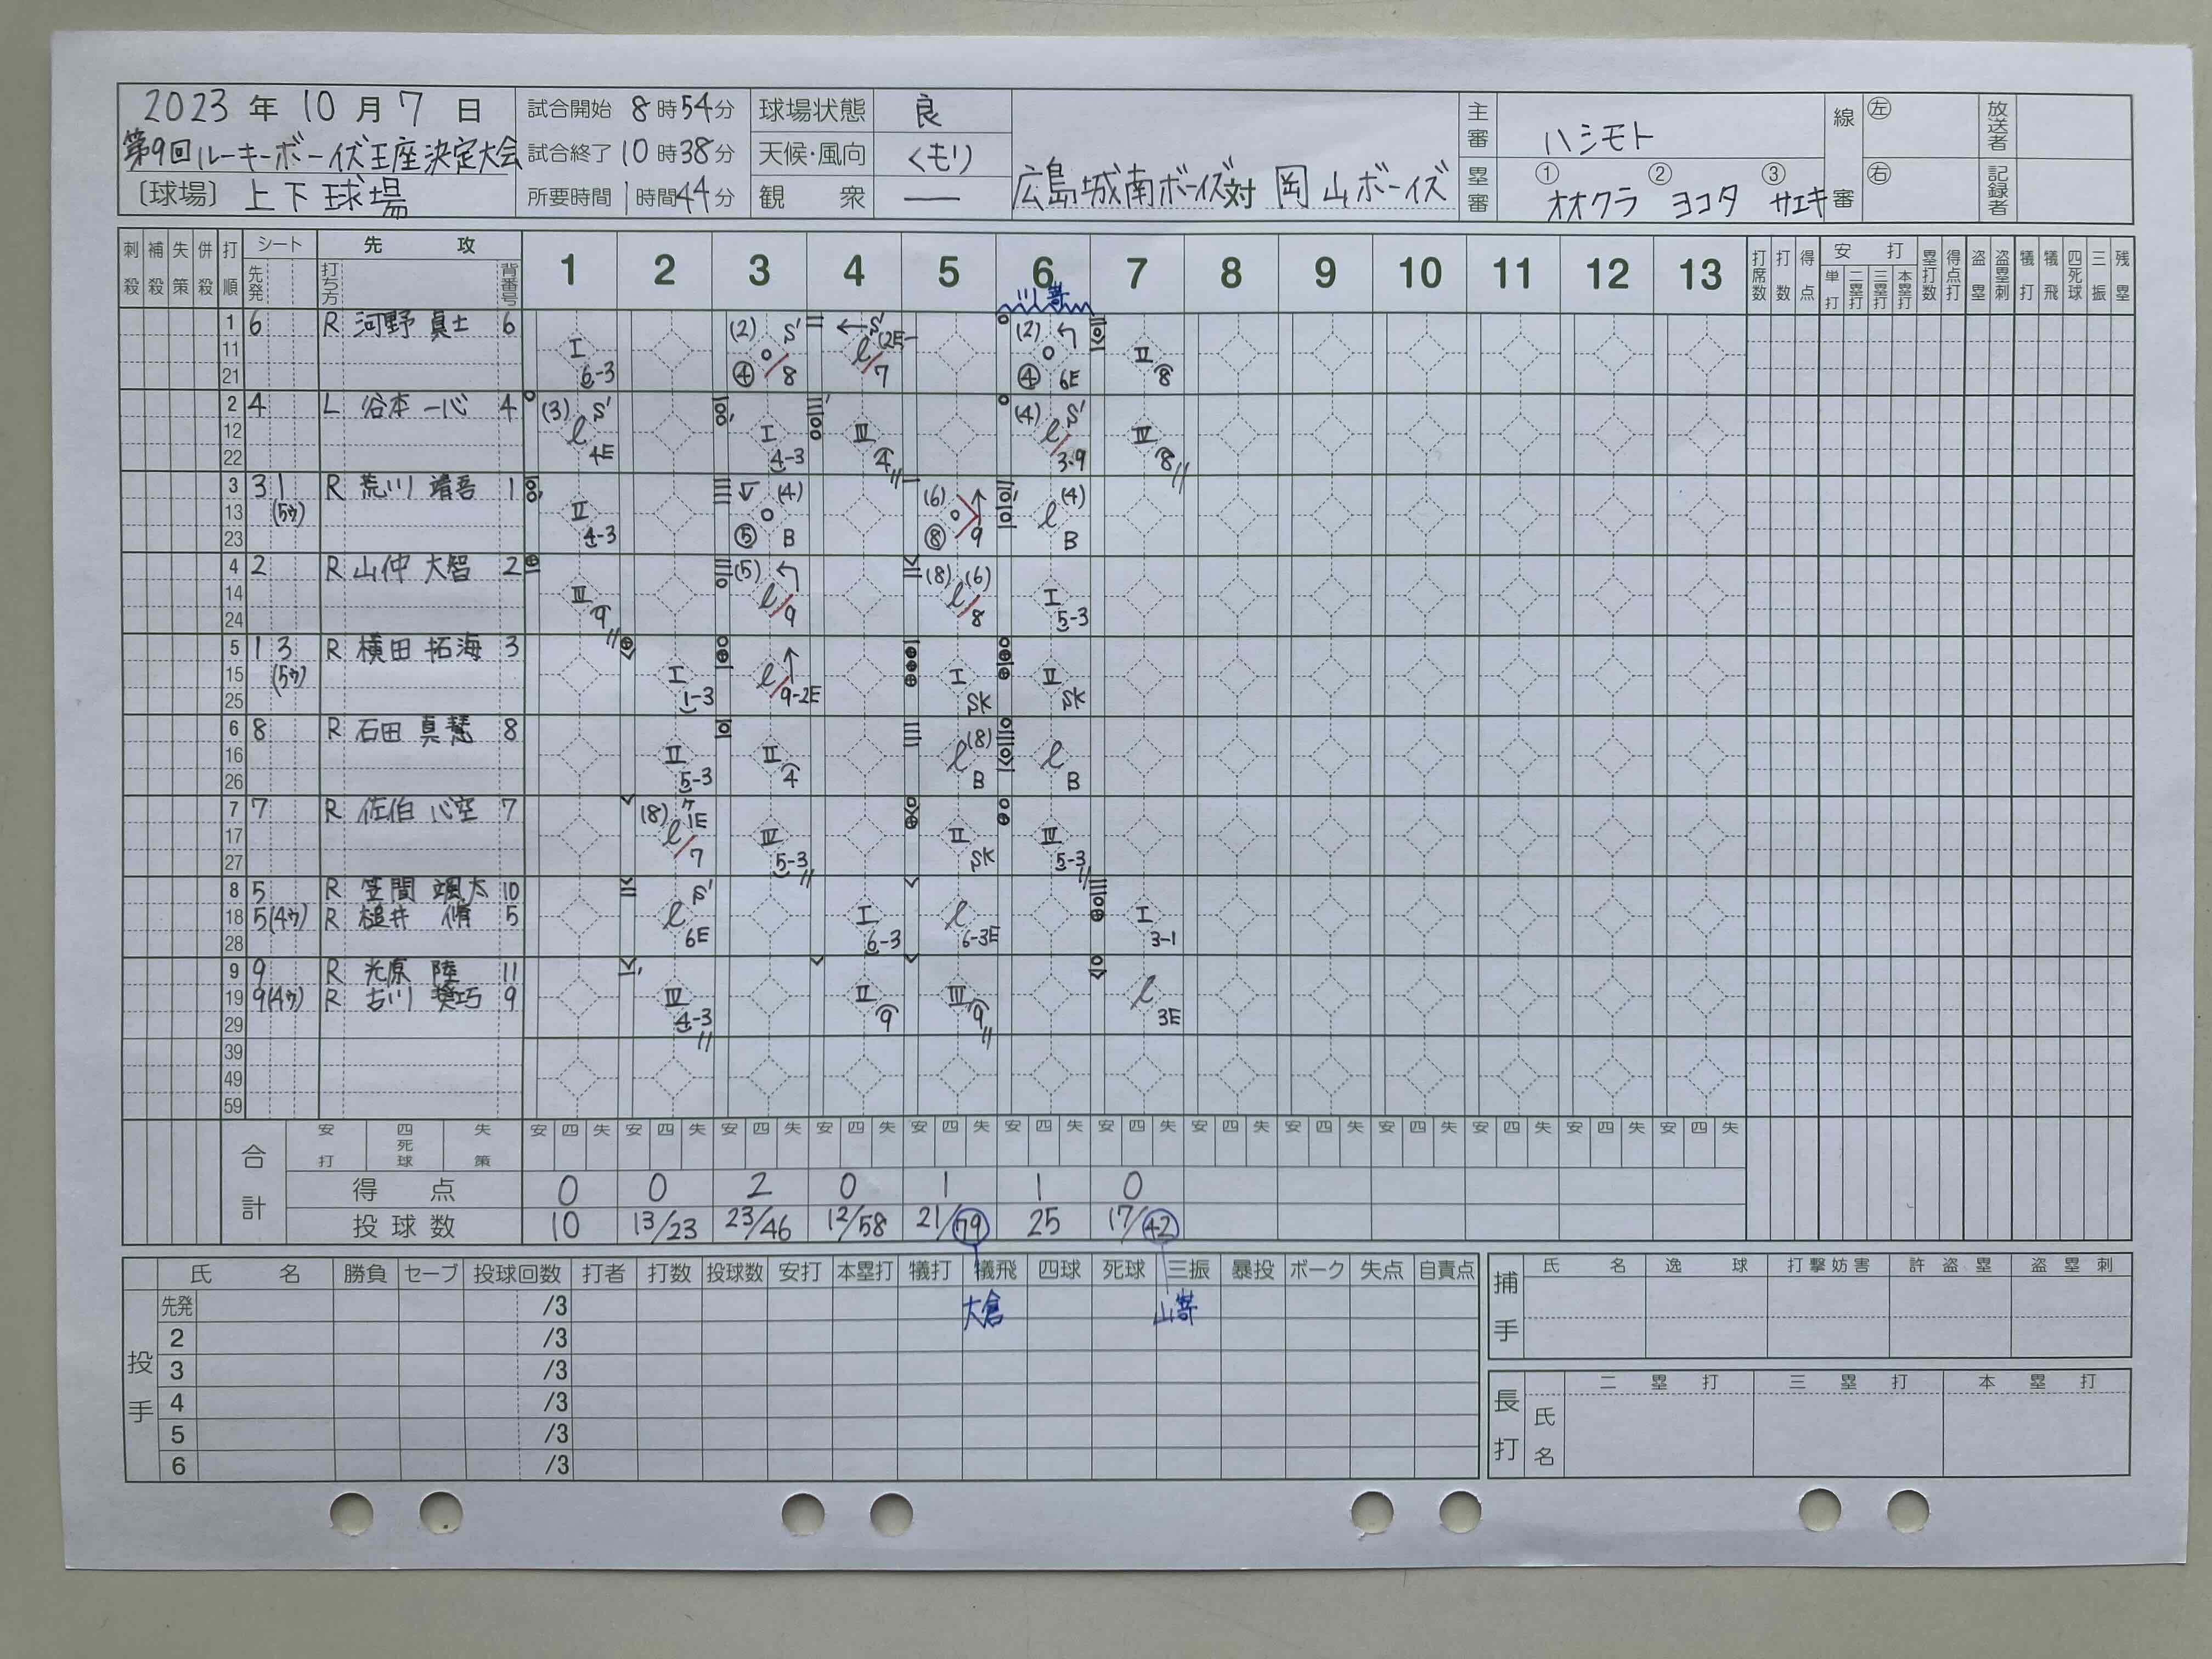 2023年 10月 7日 試合開始 8時54分 球場状態 良 主審 ハシモト 線審 左 放送者
第9回ルーキーボーイズ王座決定大会 試合終了 10時38分 天候・風向 くもり 広島城南ボーイズ対 岡山ボーイズ 塁審 ① ② ③ 右 記録者
〔球場〕上下球場 所要時間 1時間44分 観衆 — オオクラ ヨコタ サエキ
刺殺 補殺 失策 併殺 打順 シート 先発 先攻 打ち方 背番号 1 2 3 4 5 6 7 8 9 10 11 12 13 打席数 打数 得点 安打 単打 二塁打 三塁打 本塁打 塁打数 得点打 盗塁 盗塁刺 犠打 犠飛 四死球 三振 残塁
1 6 R 河野 真士 6 I 6-3 (2) S' ④ 8 S' (2E- l 7 (2) ④ 6E II 8
11
21
2 4 L 谷本 一心 4 (3) S' l 4E I 4-3 III 4 (4) S' l 3-9 IV 8
12
22
3 3 1 R 荒川 靖吾 1 II 4-3 (4) ⑤ B (6) ⑧ 9 (4) l B
13 (5ウ)
23
4 2 R 山仲 大智 2 III 9 (5) l 9 (8) (6) l 8 I 5-3
14
24
5 1 3 R 横田 拓海 3 I 1-3 l 9-2E I SK II SK
15 (5ウ)
25
6 8 R 石田 真慧 8 II 5-3 II 4 (8) l B l B
16
26
7 7 R 佐伯 心空 7 (8) 1E l 7 III 5-3 II SK III 5-3
17
27
8 5 R 笠間 颯太 10 S' l 6E I 6-3 l 6-3E I 3-1
18 5(4ウ) R 槌井 脩 5
28
9 9 R 光原 陸 11 III 4-3 II 9 III 9 l 3E
19 9(4ウ) R 古川 9
29
39
49
59
合計 安打 四死球 失策 安 四 失 安 四 失 安 四 失 安 四 失 安 四 失 安 四 失 安 四 失 安 四 失 安 四 失 安 四 失 安 四 失 安 四 失 安 四 失
得点 0 0 2 0 1 1 0
投球数 10 13/23 23/46 12/58 21/79 25 17/42
氏名 勝負 セーブ 投球回数 打者 打数 投球数 安打 本塁打 犠打 犠飛 四球 死球 三振 暴投 ボーク 失点 自責点 捕手 氏名 逸球 打撃妨害 許盗塁 盗塁刺
投手 先発 /3 大倉 山嵜
2 /3
3 /3
4 /3 長打 氏名 二塁打 三塁打 本塁打
5 /3
6 /3